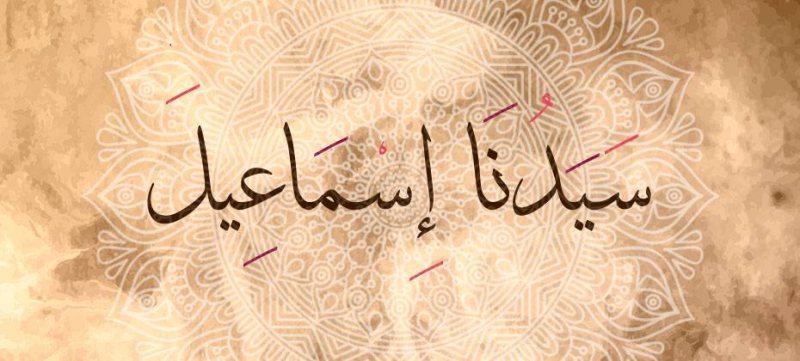 سَيَدُنَا إِسْمَاعِيلَ